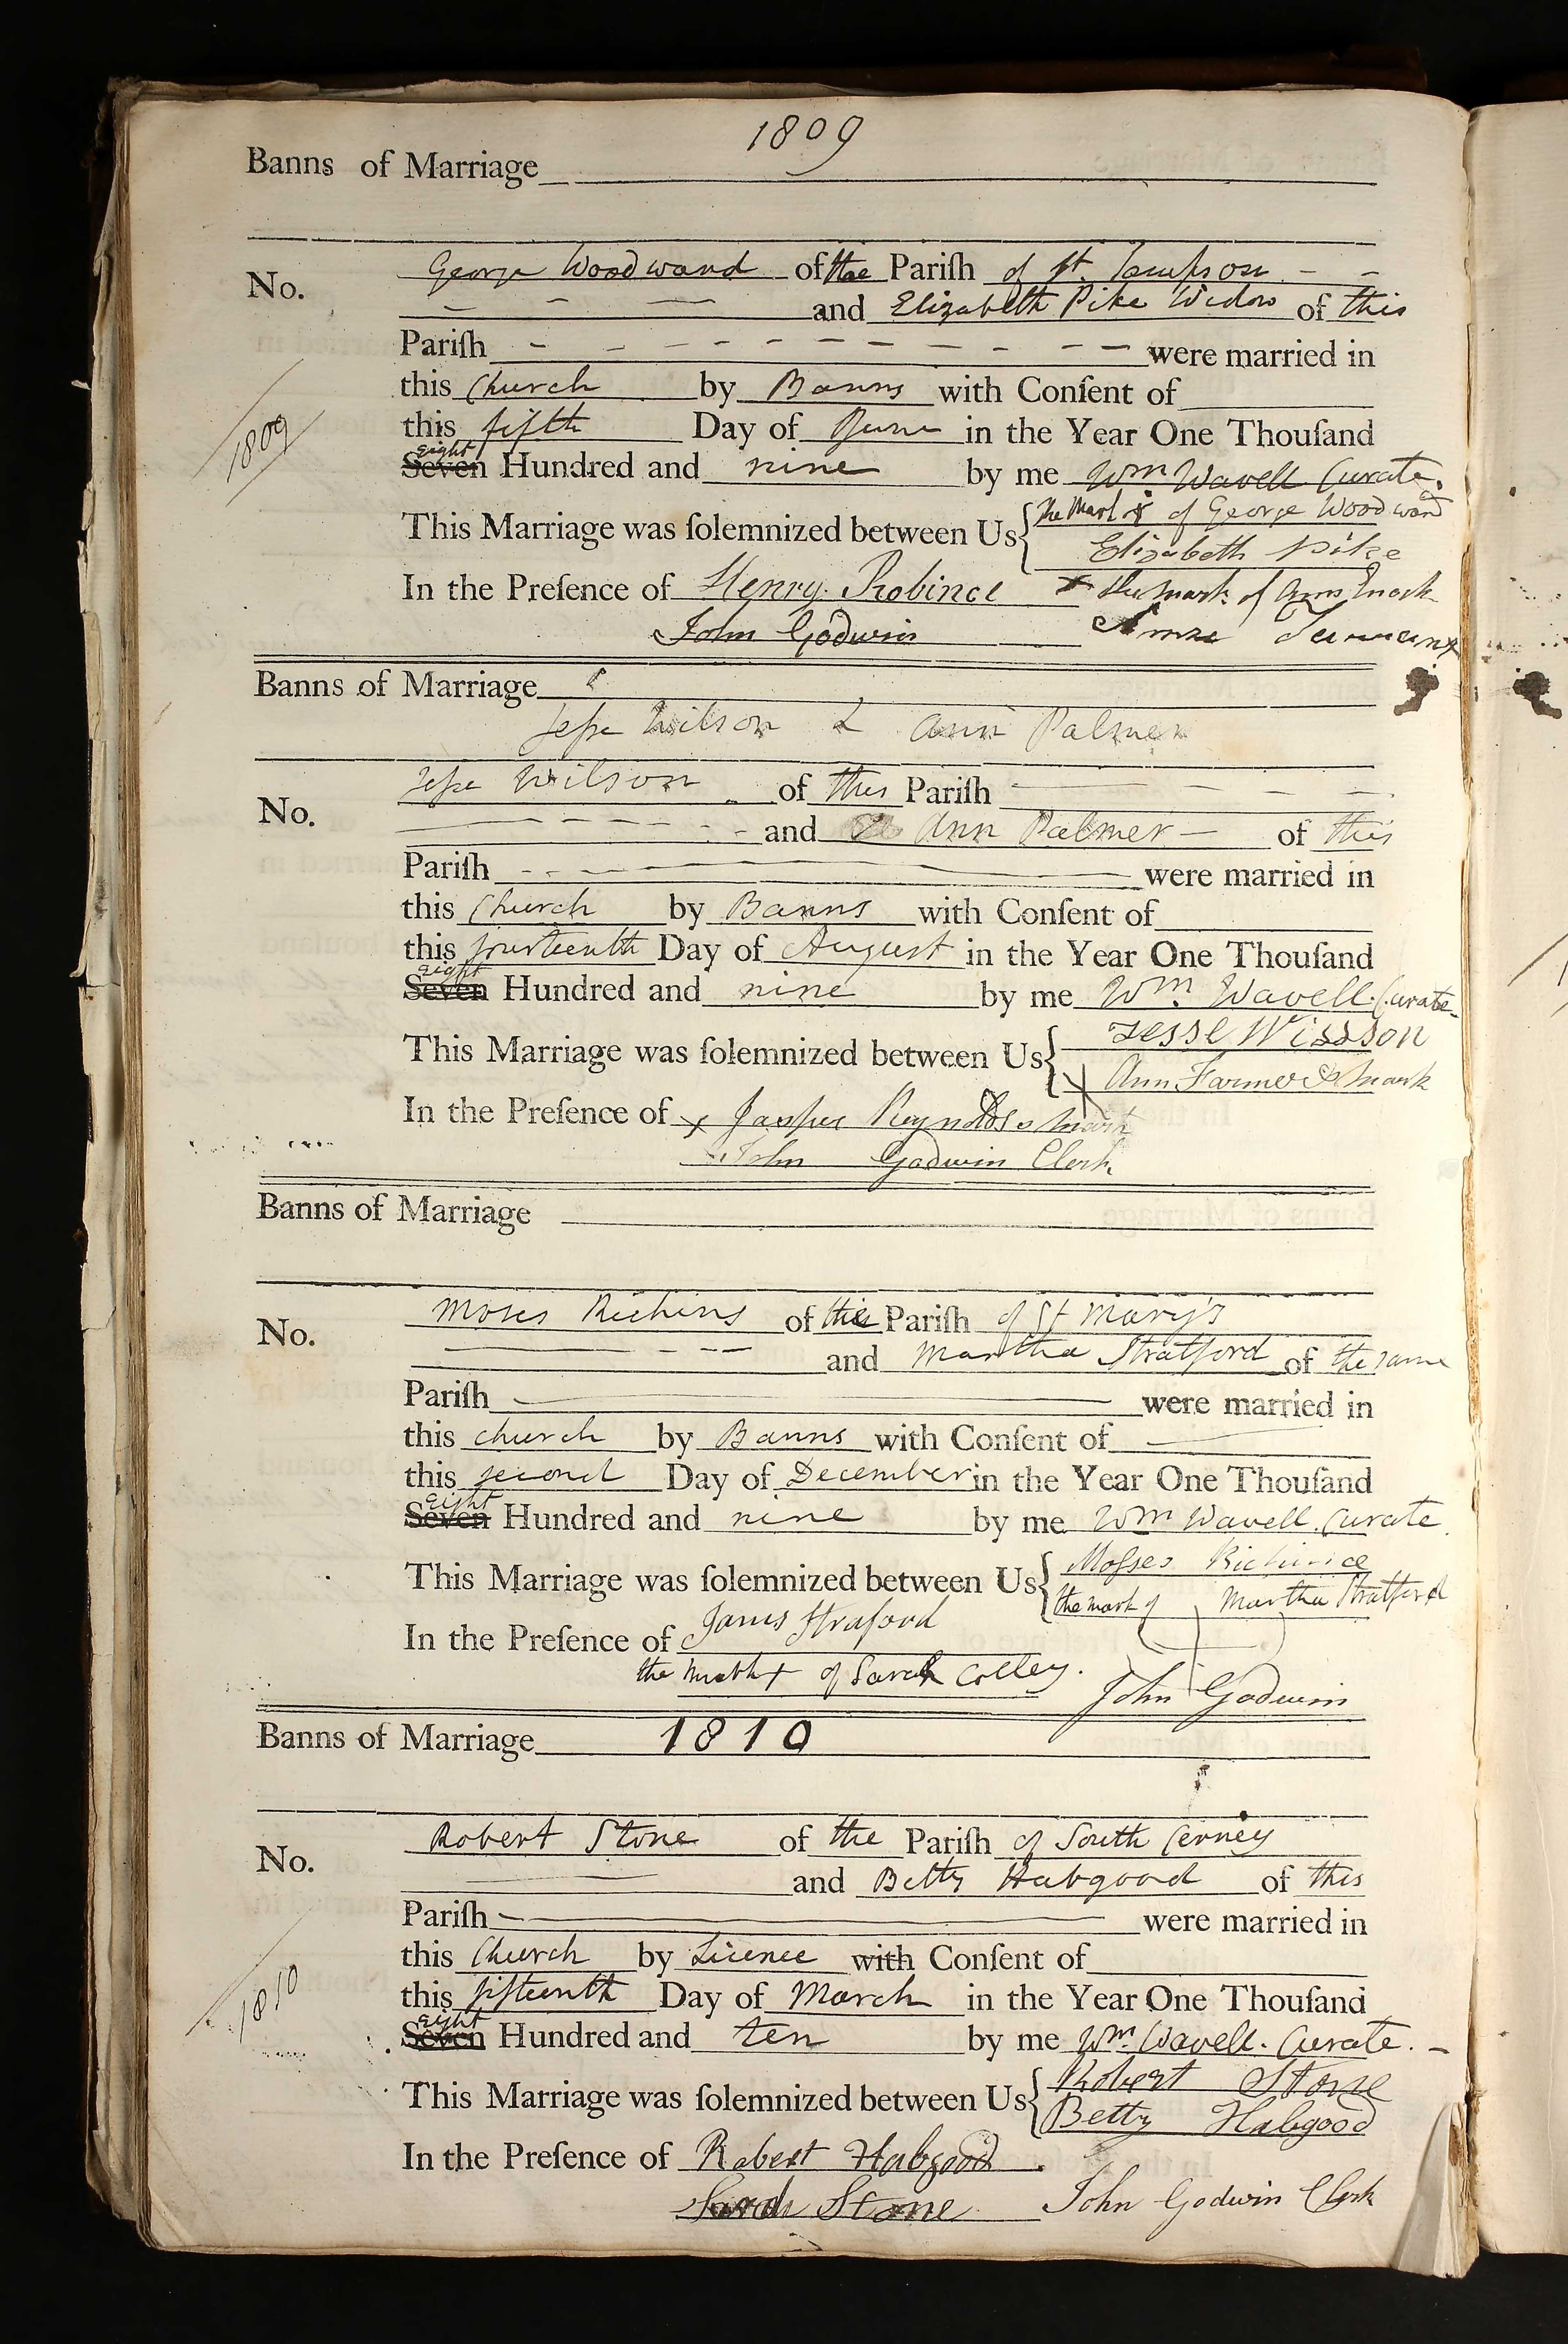 1809
Banns of Marriage
George Woodward of the Pariſh of St. Sampson
No.
and Elizabeth Pike Widow of this
Pariſh were married in
this Church by Banns with Conſent of
this fifth Day of June in the Year One Thouſand
1809
eight
Seven Hundred and nine by me Wm Wavell Curate.
This Marriage was ſolemnized between Us The Mark of George Woodward
Elizabeth Pike
In the Preſence of Henry Robince X the mark of Ann
John Godwin
Banns of Marriage
Jeſse Wilson & Ann Palmer
Jeſse Wilson of this Pariſh
No.
and Ann Palmer of this
Pariſh were married in
this Church by Banns with Conſent of
this fourteenth Day of August in the Year One Thouſand
eight
Seven Hundred and nine by me Wm. Wavell. Curate
This Marriage was ſolemnized between Us Jesse Wisson
Ann Farmer mark
In the Preſence of x Jasper Reynolds mark
John Godwin Clerk
Banns of Marriage
Moses Richins of the Pariſh of St Mary's
No.
and Martha Stratford of the same
Pariſh were married in
this church by Banns with Conſent of
this second Day of December in the Year One Thouſand
eight
Seven Hundred and nine by me Wm Wavell. Curate
This Marriage was ſolemnized between Us Moſses
the mark of Martha Stratford
In the Preſence of James Straford
the mark + of Sarah Colley.
John Godwin
Banns of Marriage 1810
Robert Stone of the Pariſh of South Cerney
No.
and Betty Habgood of this
Pariſh were married in
this Church by Licence with Conſent of
this fifteenth Day of March in the Year One Thouſand
1810
eight
Seven Hundred and ten by me Wm. Wavell. Curate.
This Marriage was ſolemnized between Us Robert Stone
Betty Habgood
In the Preſence of Robert Habgood
Sarah Stone John Godwin Clerk